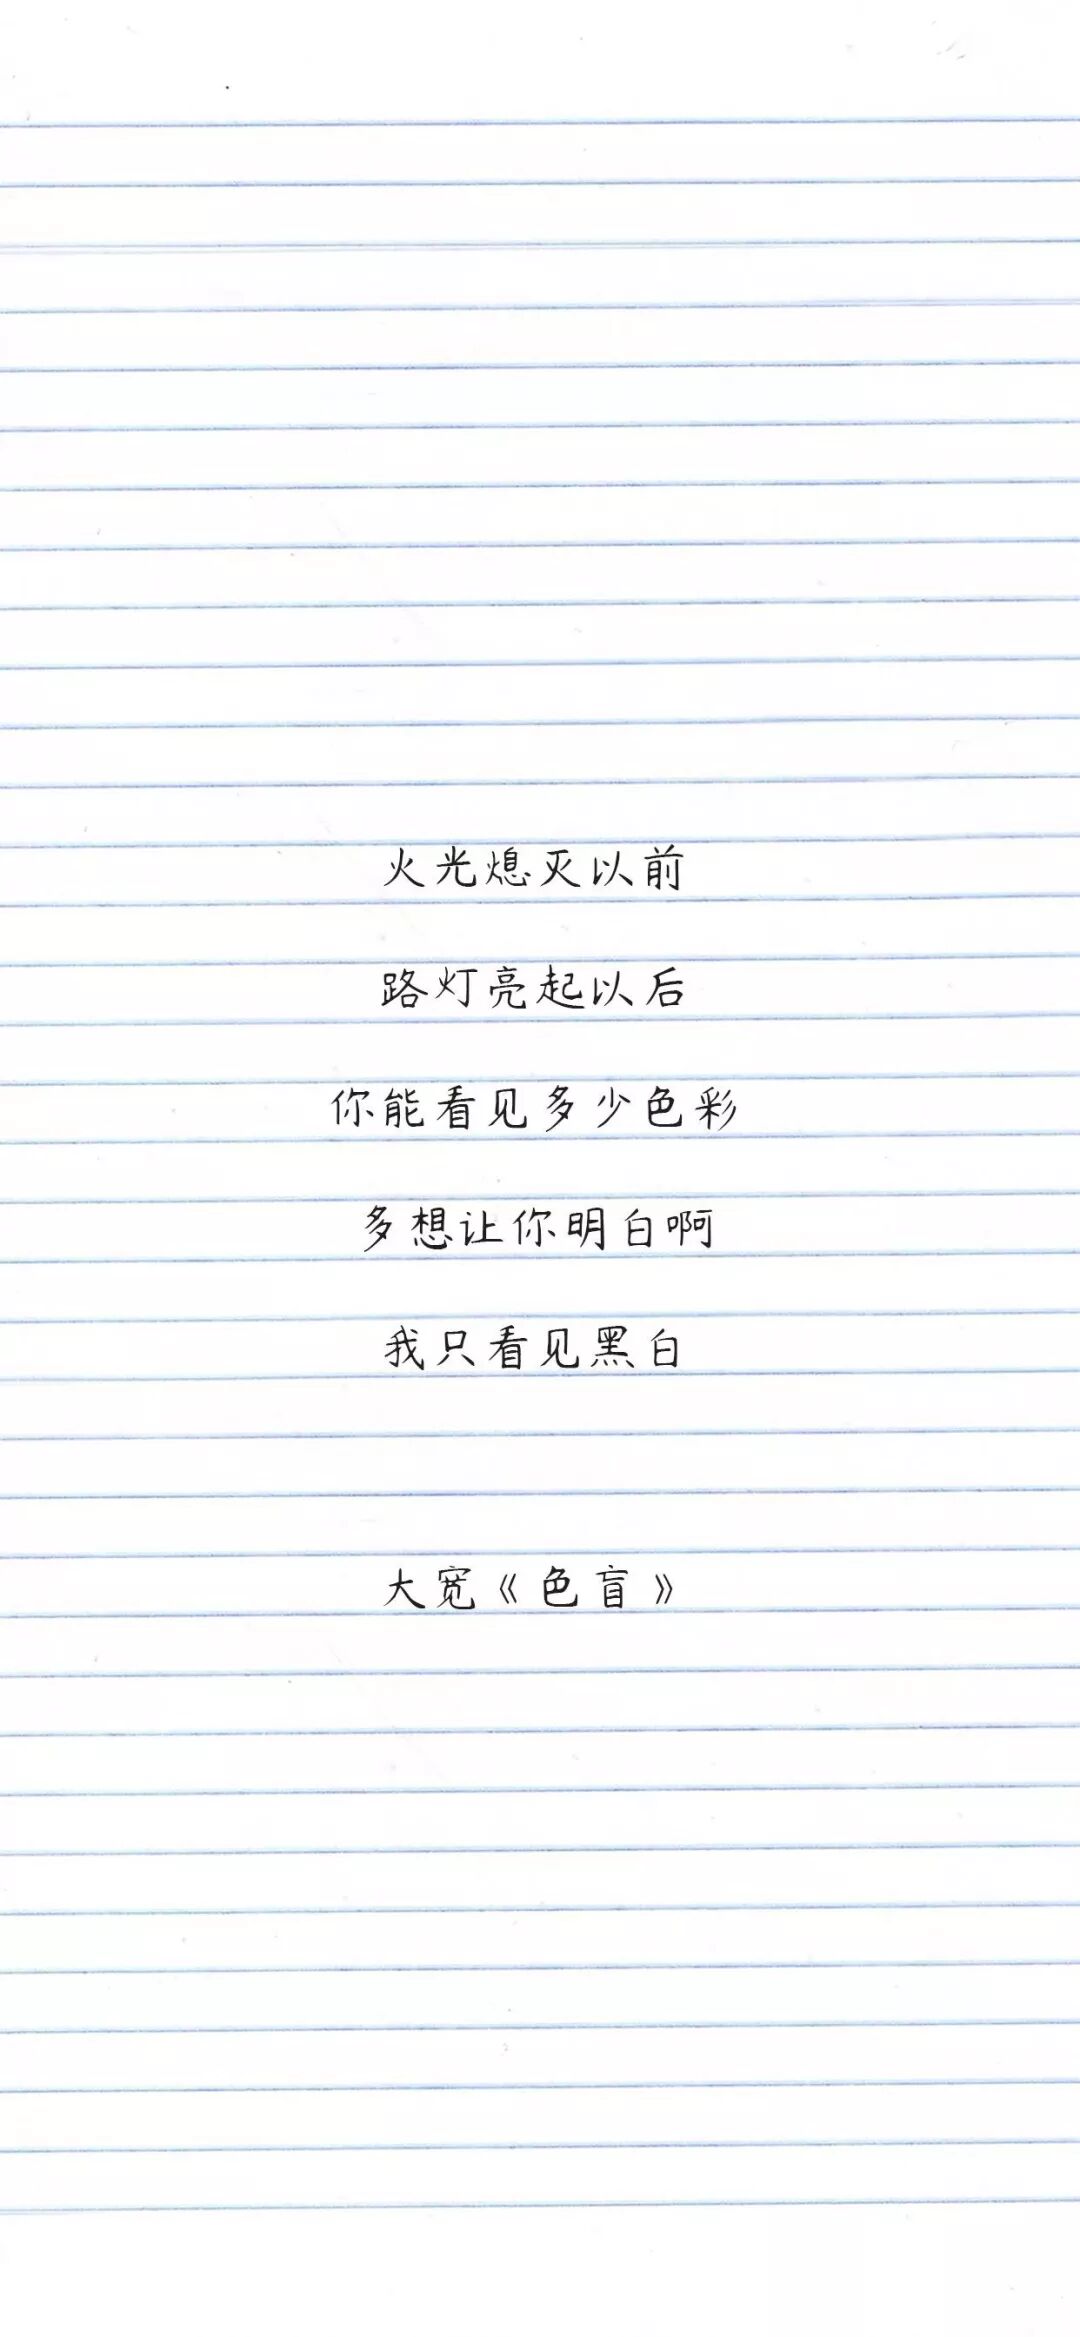 火光熄灭以前
路灯亮起以后
你能看见多少色彩
多想让你明白啊
我只看见黑白
大宽《色盲》